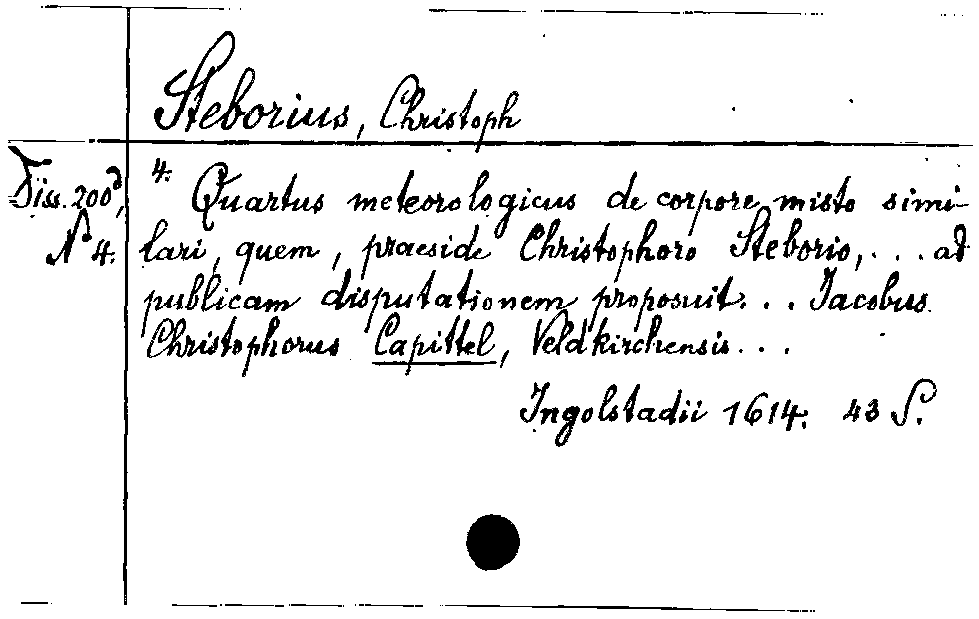 Steborius, Christoph
Diss. 200d,
N 4.
4. Quartus meteorologicus de corpore misto simi-
lari, quem, praeside Christophoro Steborio, ... ad
publicam disputationem proposuit ... Jacobus
Christophorus Capittel, Veldkirchensis ...
Ingolstadii 1614. 43 S.